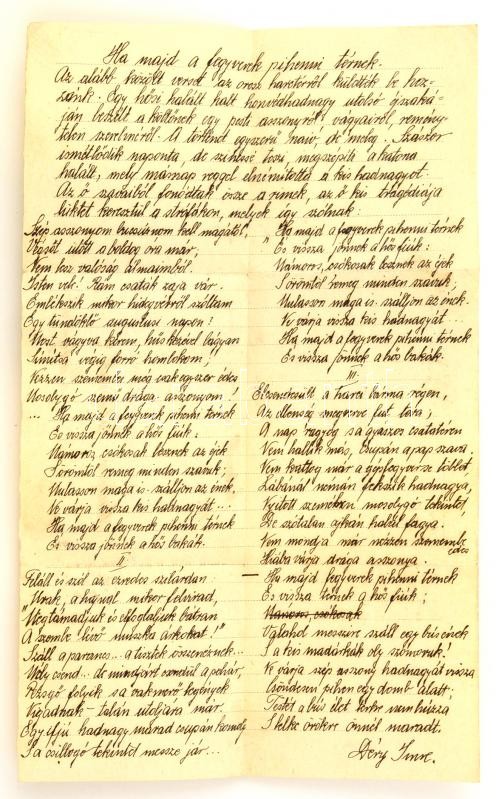 Ha majd a fegyverek pihenni térnek.
Az alább közölt verset az orosz harctérről küldték be hoz-
zánk. Egy hősi halált halt honvédhadnagy utolsó éjszaká-
ján beszélt a költőnek egy pesti asszonyról vágyairól, remény-
telen szerelméről. A történet egyszerű naiv, de meleg. Százszor
ismétlődik naponta, de széppé teszi, megszépíti a katona
halált, mely másnap reggel elnémította a kis hadnagyot.
Az ő szavaiból fonódtak össze a rimek, az ő kis tragédiája
lüktet keresztül a strófákon, melyek így szólnak:
Szép asszonyom búcsúznom kell magától,
Végső ütött a boldog óra már,
Nem lesz valóság álmaimból.
Isten vele! Rám csaták zaja vár.
Emlékszik mikor hidegvérből szóltam
Egy tündöklő augustusi napon?
Most vágyva kérem, kis kezével lágyan
Simítsa végig forró homlokom,
Nézzen szemembe még csak egyszer édes
Mosolygó szemű drága asszonyom!
... Ha majd a fegyverek pihenni térnek
És vissza jönnek a hős fiúk:
Mámoros, csókosak lesznek az éjek
Örömtől remeg minden szavuk;
Mulasson maga is szálljon az ének,
Ne várja vissza kis hadnagyát...
Ha majd a fegyverek pihenni térnek
És vissza jönnek a hős bakák.
II.
Feláll és szól az ezredes szilárdan:
"Urak, a hajnal mikor felvirad,
"Megtámadjuk és elfoglaljuk bátran
A szembe lévő muszka árkokat!"
Száll a parancs... a tisztek összenéznek...
Mély csend... de mindjárt csendül a pohár,
Pezsgő folyik s a vakmerő legények
Vigadnak - talán utoljára már.
Egy ifjú hadnagy marad csupán komoly
S a csillogó tekintet messze jár...
"Ha majd a fegyverek pihenni térnek
És vissza jönnek a hős fiúk:
Mámoros, csókosak lesznek az éjek
Örömtől remeg minden szavuk;
Mulasson maga is szálljon az ének.
Ne várja vissza kis hadnagyát...
Ha majd a fegyverek pihenni térnek
És vissza jönnek a hős bakák.
III.
Elcsendesült a harci lárma régen,
Az ellenség megverve fut tova;
A nap ragyog s a gyászos csatatéren
Nem hallik más, csupán a pap szava.
Nem kattog már a gépfegyver többet
Lábánál némán fekszik hadnagya,
Nyitott szemében mosolygó tekintet,
De szótalan ajkán halál fagya.
Nem mondja már nézzen szemembe
édes
Hiába várja drága asszonya.
— Ha majd fegyverek pihenni térnek
És vissza térnek a hős fiúk;
Mámoros, csókosak
Valahol messzire száll egy bús ének
S a kis madárkák oly szomorúk!
Ne várja szép asszony hadnagyát vissza
Csöndesen pihen egy domb alatt;
Testét a bús élet nem húzza
S lelke örökre önnél maradt.
Déry Imre.